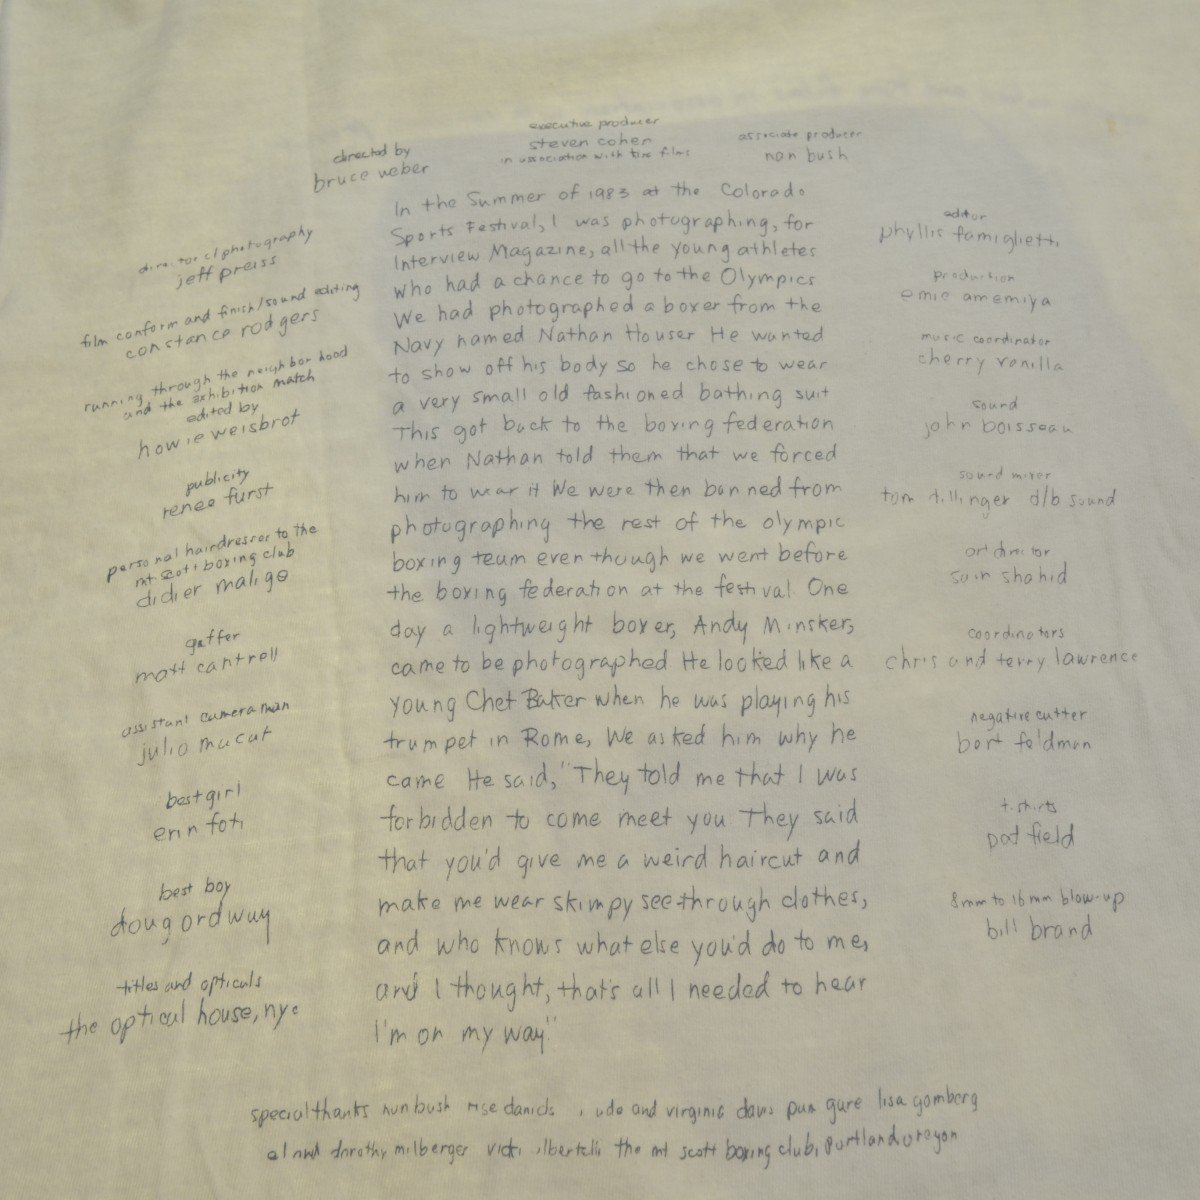 executive producer
steven cohen
in association with fire films
associate producer
nan bush
directed by
bruce weber
director of photography
jeff preiss
film conform and finish/sound editing
constance rodgers
running through the neighborhood
and the exhibition match
edited by
howie weisbrot
publicity
renee furst
personal hairdresser to the
mt. scott boxing club
didier maligo
gaffer
matt cantrell
assistant cameraman
julio macat
best girl
erin foti
best boy
doug ordway
titles and opticals
the optical house, nyc
In the Summer of 1983 at the Colorado
Sports Festival, I was photographing, for
Interview Magazine, all the young athletes
who had a chance to go to the Olympics
We had photographed a boxer from the
Navy named Nathan Houser He wanted
to show off his body so he chose to wear
a very small old fashioned bathing suit
This got back to the boxing federation
when Nathan told them that we forced
him to wear it We were then banned from
photographing the rest of the olympic
boxing team even though we went before
the boxing federation at the festival. One
day a lightweight boxer, Andy Minsker,
came to be photographed He looked like a
young Chet Baker when he was playing his
trumpet in Rome, We asked him why he
came He said, "They told me that I was
forbidden to come meet you They said
that you'd give me a weird haircut and
make me wear skimpy see-through clothes,
and who knows what else you'd do to me,
and I thought, that's all I needed to hear
I'm on my way"
editor
phyllis famiglietti
production
emie amemiya
music coordinator
cherry vanilla
sound
john boisseau
sound mixer
tom fillinger d/b sound
art director
sam shahid
coordinators
chris and terry lawrence
negative cutter
bert feldman
t. shirts
pat field
8mm to 16mm blow-up
bill brand
special thanks nan bush rise daniels and virginia davis pam gure lisa gomberg
al and dorothy milberger vicki the mt scott boxing club, portland oregon